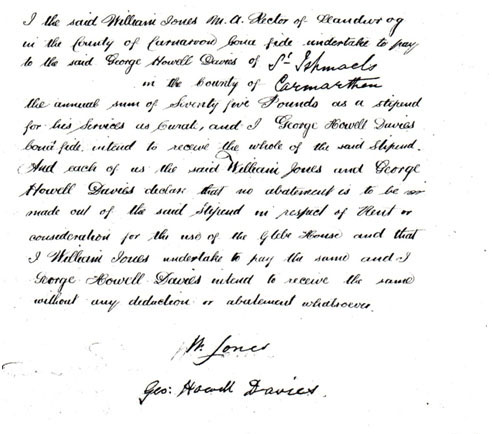 I the said William Jones M.A. Rector of Llandwrog
in the County of Carnarvon bona fide undertake to pay
to the said George Howell Davies of St Ishmaels
in the County of Carmarthen
the annual sum of Seventy five Pounds as a stipend
for his Services as Curate, and I George Howell Davies
bona fide intend to receive the whole of the said Stipend.
And each of us the said William Jones and George
Howell Davies declare that no abatement is to be
made out of the said Stipend in respect of Rent or
consideration for the use of the Glebe House and that
I William Jones undertake to pay the same and I
George Howell Davies intend to receive the same
without any deduction or abatement whatsoever.
W. Jones
Geo: Howell Davies.